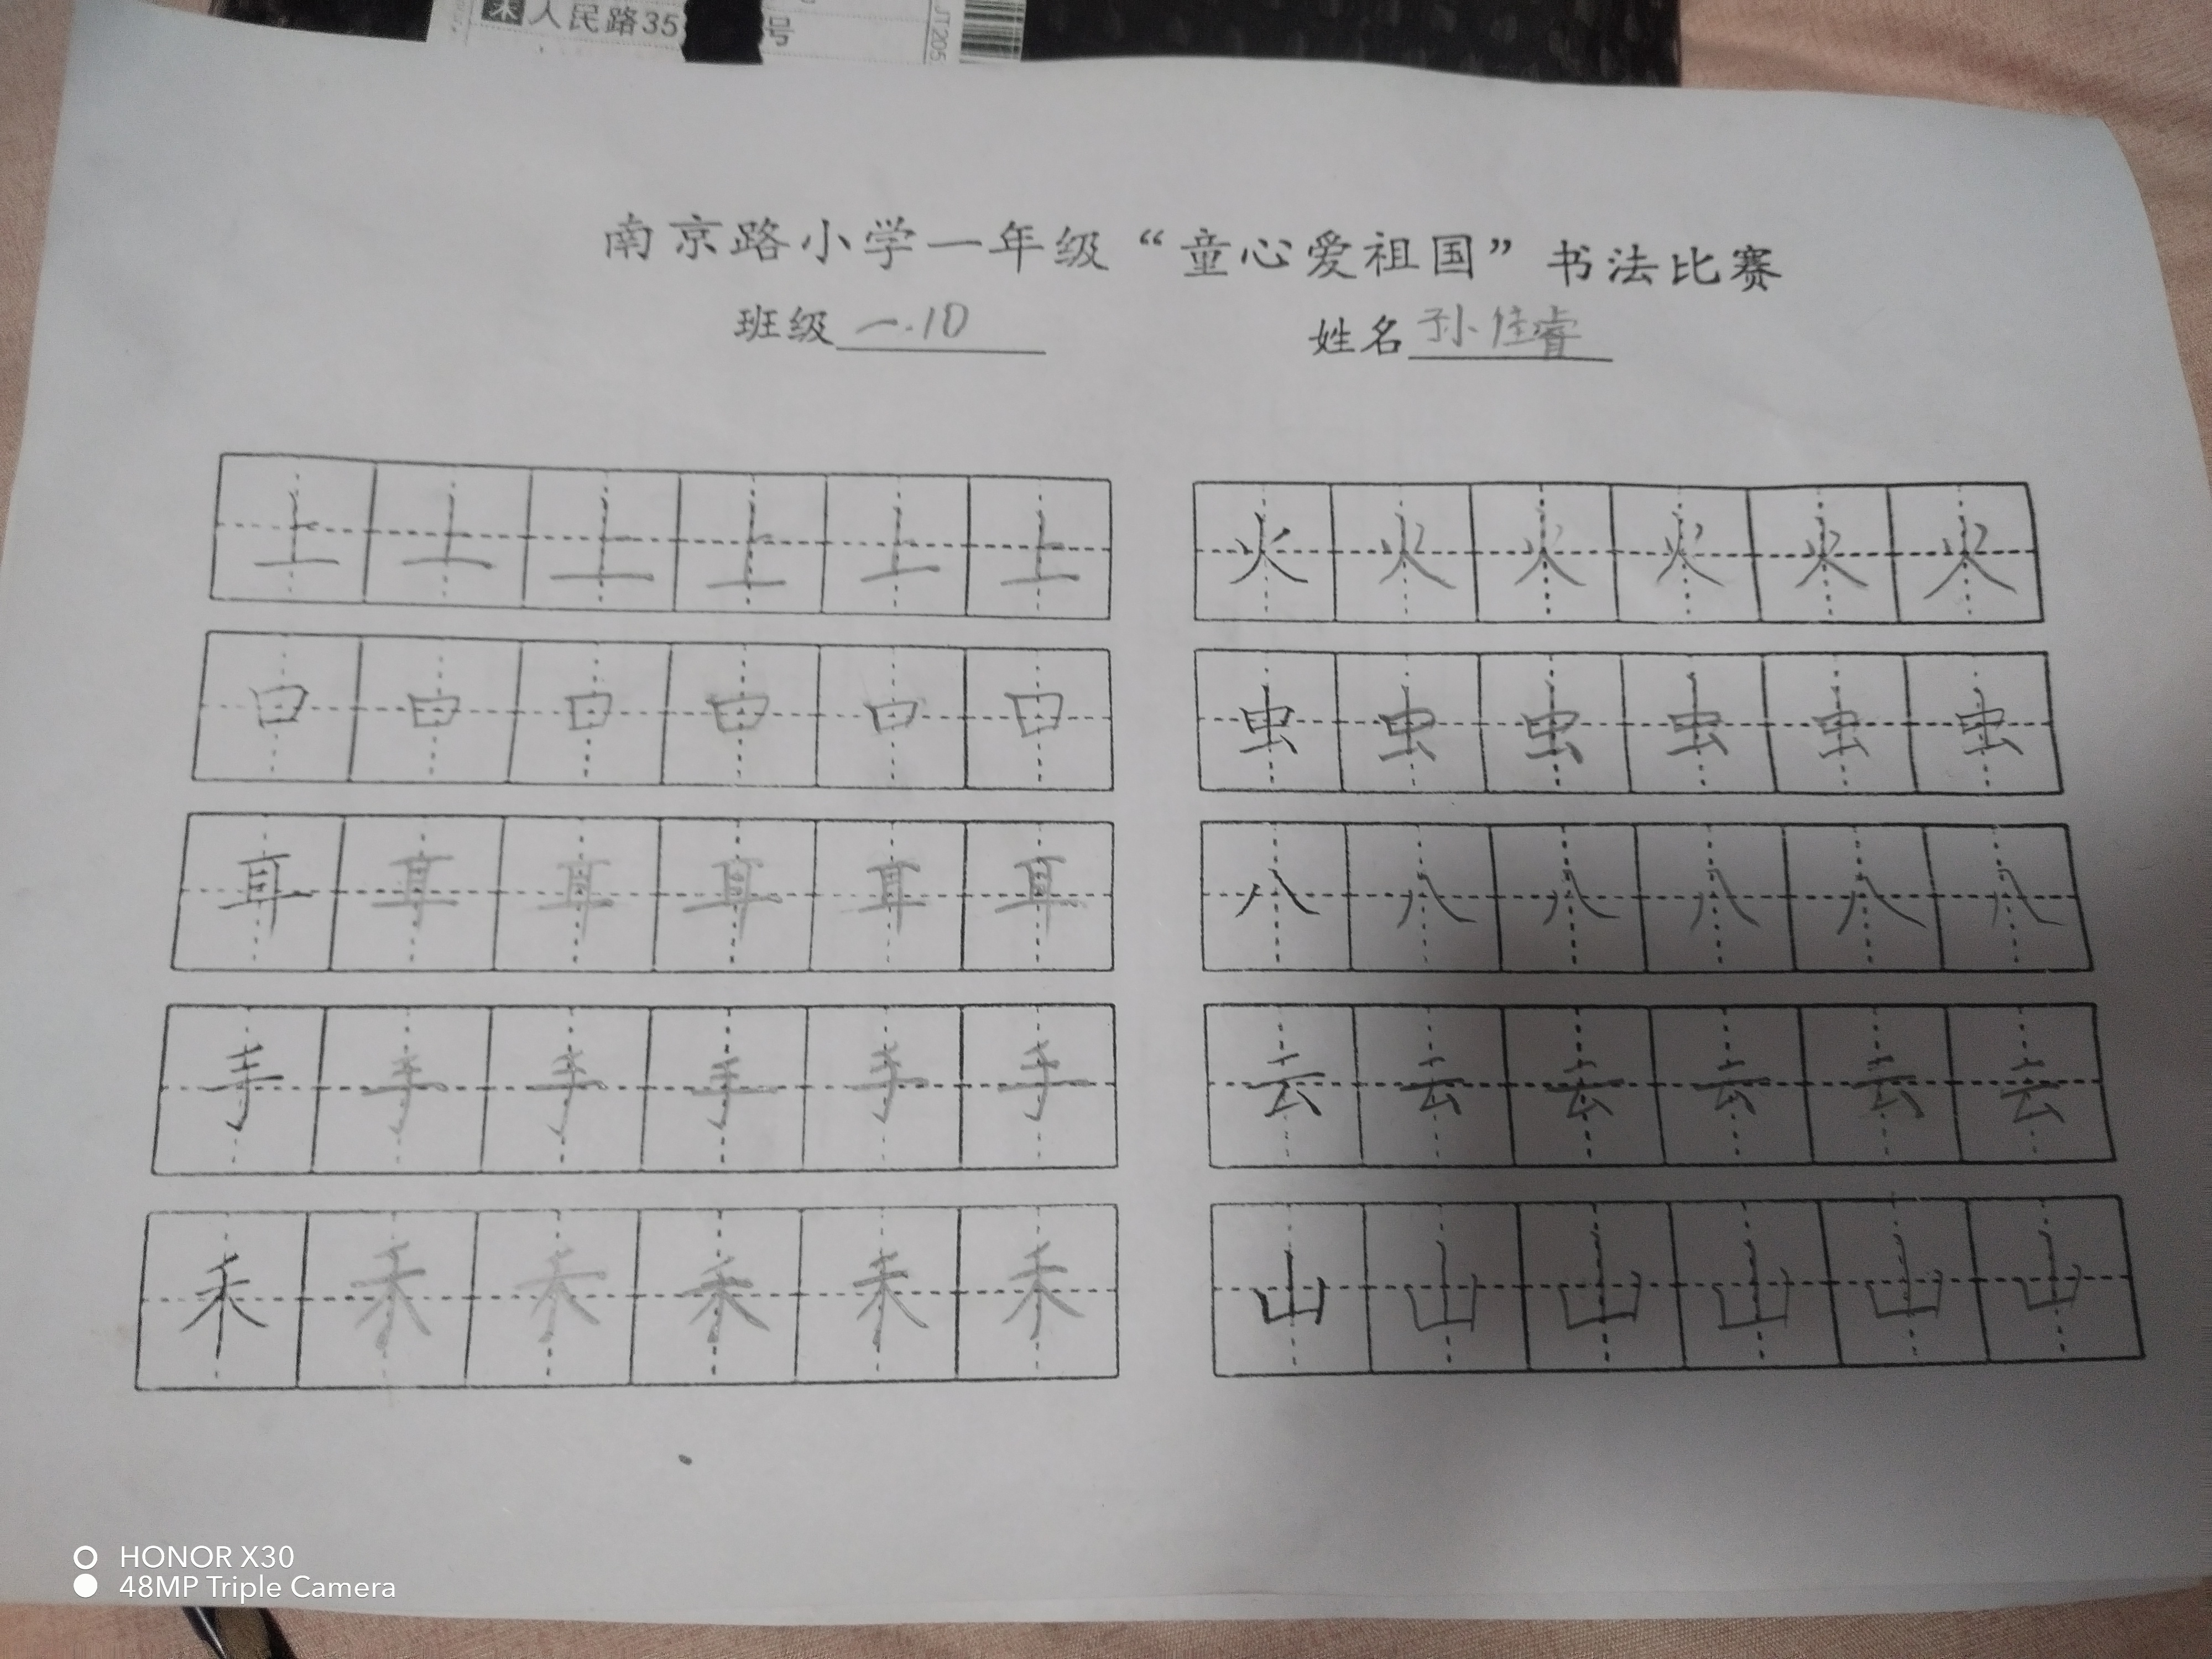 人民路35 号
JT205
南京路小学一年级“童心爱祖国”书法比赛
班级 一.10 姓名 孙佳睿
上 上 上 上 上 上 火 火 火 火 火 火
口 口 口 口 口 口 虫 虫 虫 虫 虫 虫
耳 耳 耳 耳 耳 耳 八 八 八 八 八 八
手 手 手 手 手 手 云 云 云 云 云 云
禾 禾 禾 禾 禾 禾 山 山 山 山 山 山
HONOR X30
48MP Triple Camera